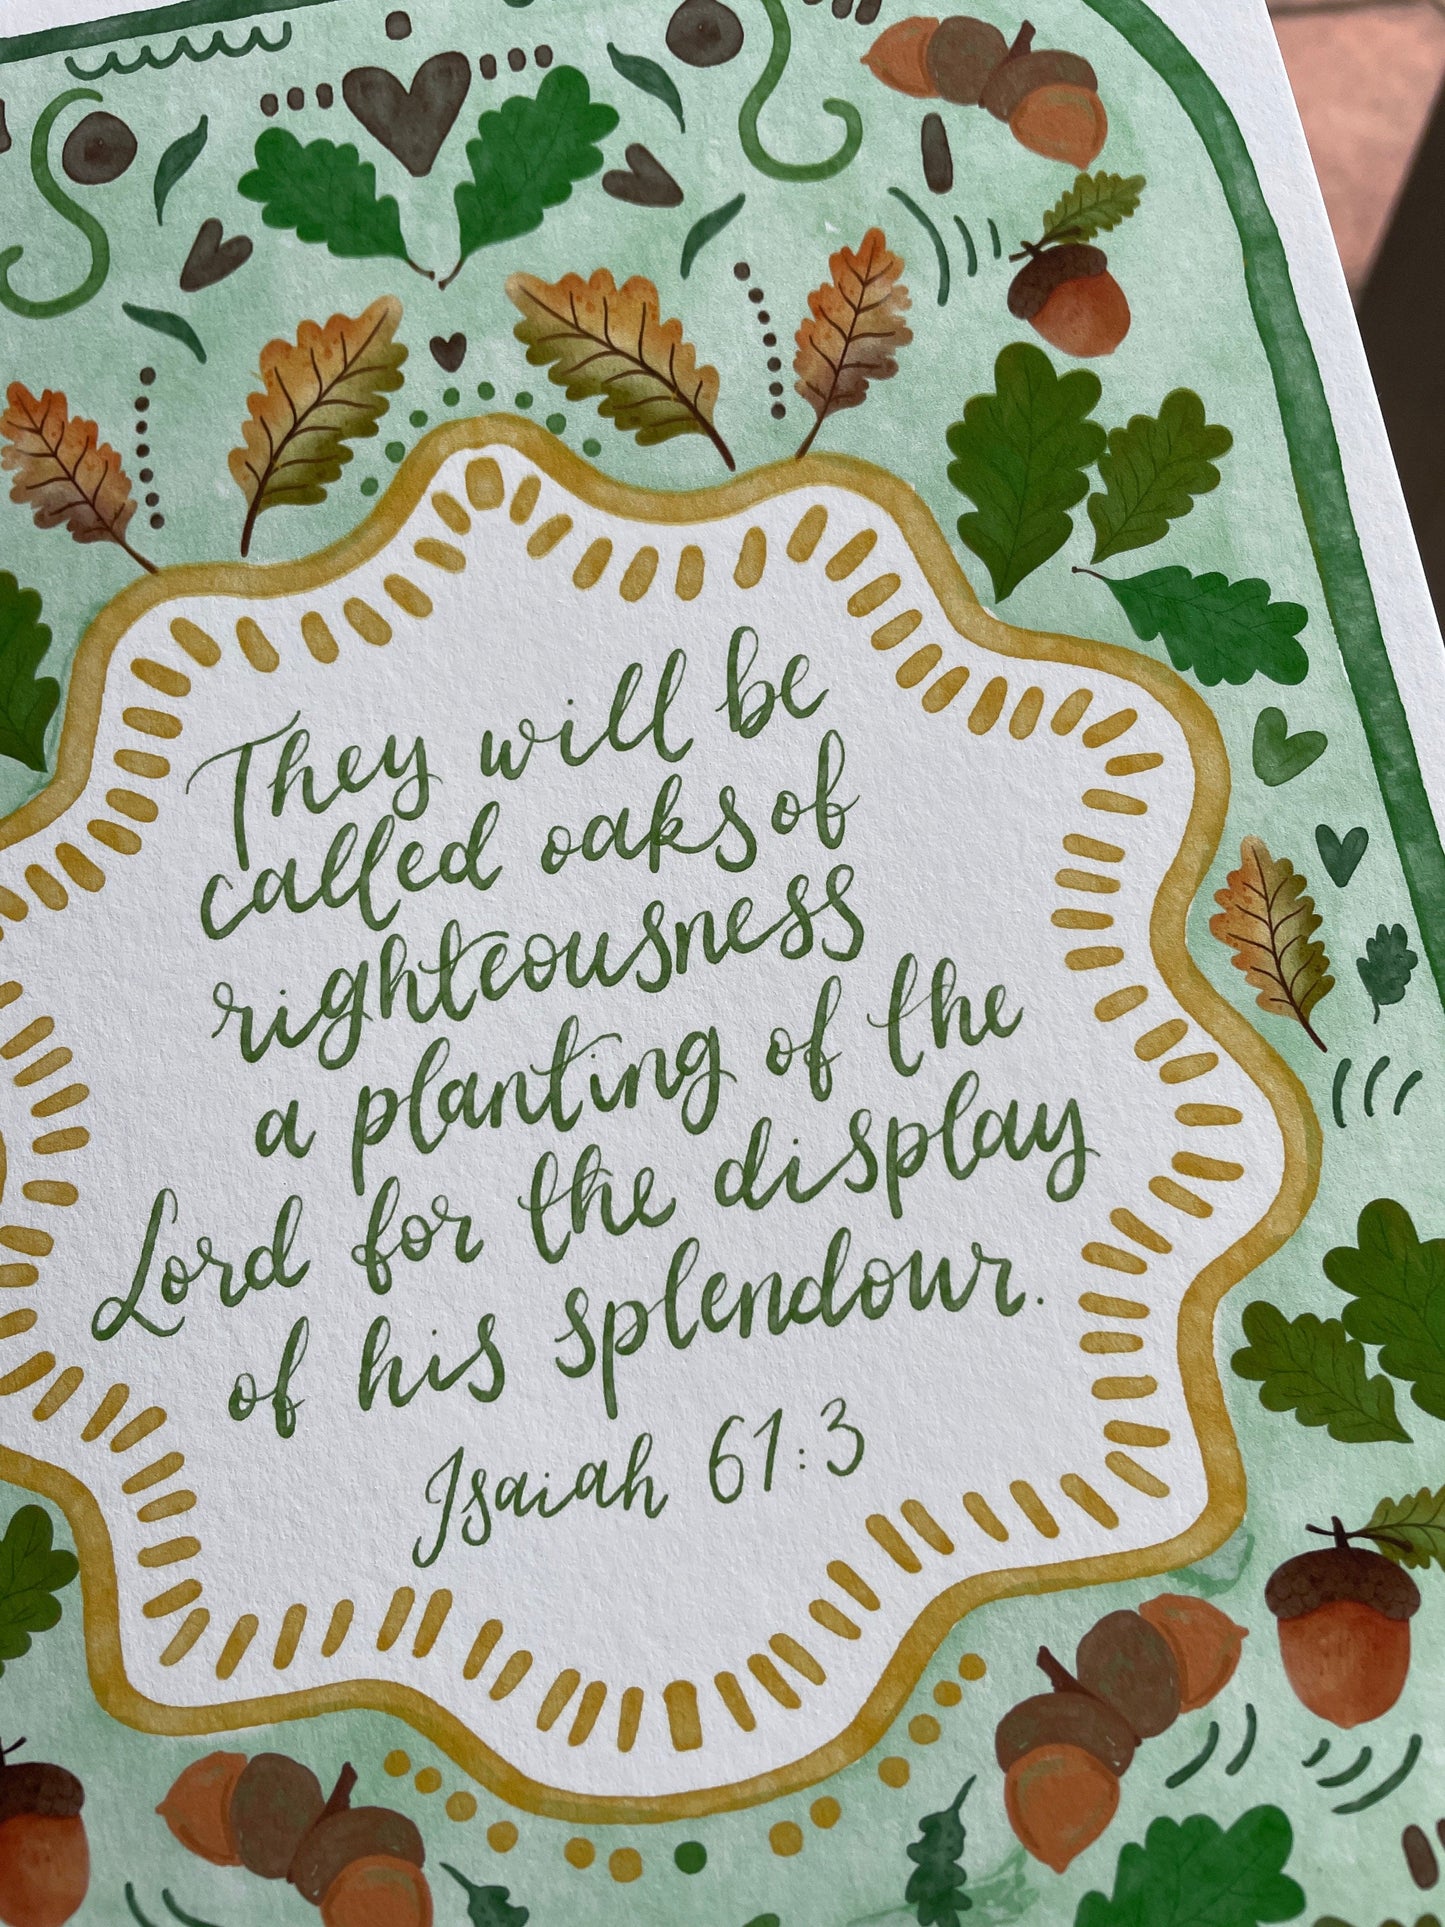 They will be
called oaks of
righteousness
a planting of the
Lord for the display
of his splendour.
Isaiah 61:3